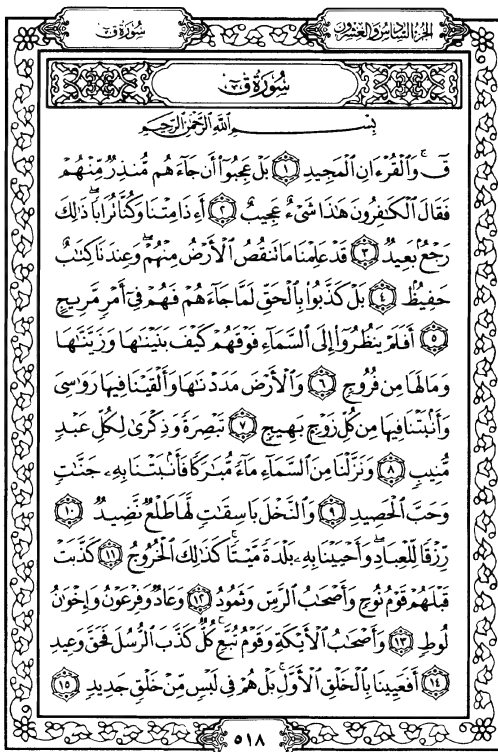 الجزء السادس والعشرون
سورة ق
سُورَةُ ق
بِسْمِ اللَّهِ الرَّحْمَٰنِ الرَّحِيمِ
قٓ ۚ وَالْقُرْءَانِ الْمَجِيدِ ١ بَلْ عَجِبُوٓا۟ أَن جَآءَهُم مُّنذِرٌ مِّنْهُمْ
فَقَالَ الْكَٰفِرُونَ هَٰذَا شَىْءٌ عَجِيبٌ ٢ أَءِذَا مِتْنَا وَكُنَّا تُرَابًا ۖ ذَٰلِكَ
رَجْعٌۢ بَعِيدٌ ٣ قَدْ عَلِمْنَا مَا تَنقُصُ الْأَرْضُ مِنْهُمْ ۖ وَعِندَنَا كِتَٰبٌ
حَفِيظٌۢ ٤ بَلْ كَذَّبُوا۟ بِالْحَقِّ لَمَّا جَآءَهُمْ فَهُمْ فِىٓ أَمْرٍ مَّرِيجٍ
٥ أَفَلَمْ يَنظُرُوٓا۟ إِلَى السَّمَآءِ فَوْقَهُمْ كَيْفَ بَنَيْنَٰهَا وَزَيَّنَّٰهَا
وَمَا لَهَا مِن فُرُوجٍ ٦ وَالْأَرْضَ مَدَدْنَٰهَا وَأَلْقَيْنَا فِيهَا رَوَٰسِىَ
وَأَنۢبَتْنَا فِيهَا مِن كُلِّ زَوْجٍۭ بَهِيجٍ ٧ تَبْصِرَةً وَذِكْرَىٰ لِكُلِّ عَبْدٍ
مُّنِيبٍ ٨ وَنَزَّلْنَا مِنَ السَّمَآءِ مَآءً مُّبَٰرَكًا فَأَنۢبَتْنَا بِهِۦ جَنَّٰتٍ
وَحَبَّ الْحَصِيدِ ٩ وَالنَّخْلَ بَاسِقَٰتٍ لَّهَا طَلْعٌ نَّضِيدٌ ١٠
رِّزْقًا لِّلْعِبَادِ ۖ وَأَحْيَيْنَا بِهِۦ بَلْدَةً مَّيْتًا ۚ كَذَٰلِكَ الْخُرُوجُ ١١ كَذَّبَتْ
قَبْلَهُمْ قَوْمُ نُوحٍ وَأَصْحَٰبُ الرَّسِّ وَثَمُودُ ١٢ وَعَادٌ وَفِرْعَوْنُ وَإِخْوَٰنُ
لُوطٍ ١٣ وَأَصْحَٰبُ الْأَيْكَةِ وَقَوْمُ تُبَّعٍ ۚ كُلٌّ كَذَّبَ الرُّسُلَ فَحَقَّ وَعِيدِ
١٤ أَفَعَيِينَا بِالْخَلْقِ الْأَوَّلِ ۚ بَلْ هُمْ فِى لَبْسٍ مِّنْ خَلْقٍ جَدِيدٍ ١٥
٥١٨